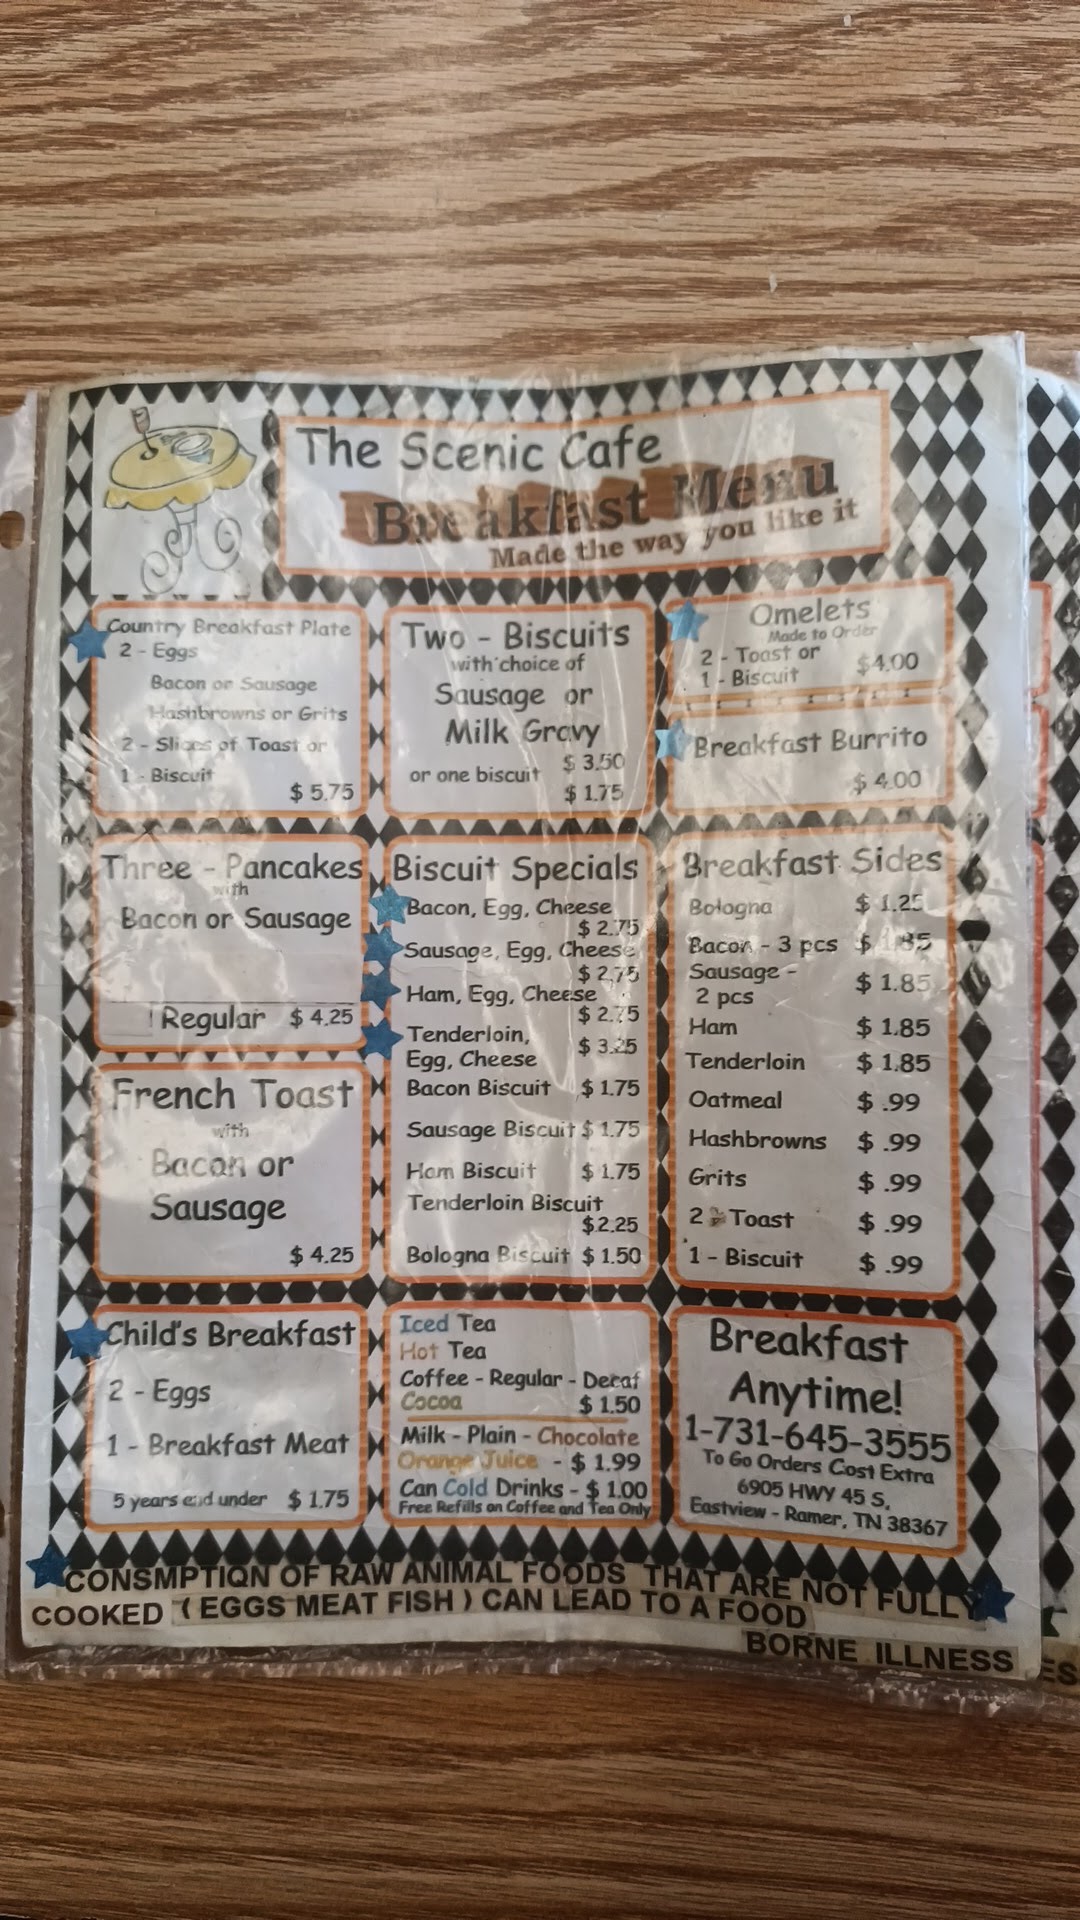 The Scenic Cafe
Breakfast Menu
Made the way you like it
Country Breakfast Plate
2 - Eggs
Bacon or Sausage
Hashbrowns or Grits
2 - Slices of Toast or
1 - Biscuit
$ 5.75
Two - Biscuits
with choice of
Sausage or
Milk Gravy
$ 3.50
or one biscuit
$ 1.75
Omelets
Made to Order
2 - Toast or
1 - Biscuit
$4.00
Breakfast Burrito
$ 4.00
Three - Pancakes
with
Bacon or Sausage
Regular $ 4.25
French Toast
with
Bacon or
Sausage
$ 4.25
Biscuit Specials
Bacon, Egg, Cheese
$ 2.75
Sausage, Egg, Cheese
$ 2.75
Ham, Egg, Cheese
$ 2.75
Tenderloin,
Egg, Cheese
$ 3.25
Bacon Biscuit $ 1.75
Sausage Biscuit $ 1.75
Ham Biscuit $ 1.75
Tenderloin Biscuit
$2.25
Bologna Biscuit $ 1.50
Breakfast Sides
Bologna $ 1.25
Bacon - 3 pcs $ 1.85
Sausage -
2 pcs
$ 1.85
Ham $ 1.85
Tenderloin $ 1.85
Oatmeal $ .99
Hashbrowns $ .99
Grits $ .99
2 Toast $ .99
1 - Biscuit $ .99
Child's Breakfast
2 - Eggs
1 - Breakfast Meat
5 years and under $ 1.75
Iced Tea
Hot Tea
Coffee - Regular - Decaf
Cocoa $ 1.50
Milk - Plain - Chocolate
Orange Juice - $ 1.99
Can Cold Drinks - $ 1.00
Free Refills on Coffee and Tea Only
Breakfast
Anytime!
1-731-645-3555
To Go Orders Cost Extra
6905 HWY 45 S,
Eastview - Ramer, TN 38367
CONSMPTION OF RAW ANIMAL FOODS THAT ARE NOT FULLY
COOKED ( EGGS MEAT FISH ) CAN LEAD TO A FOOD
BORNE ILLNESS
ES